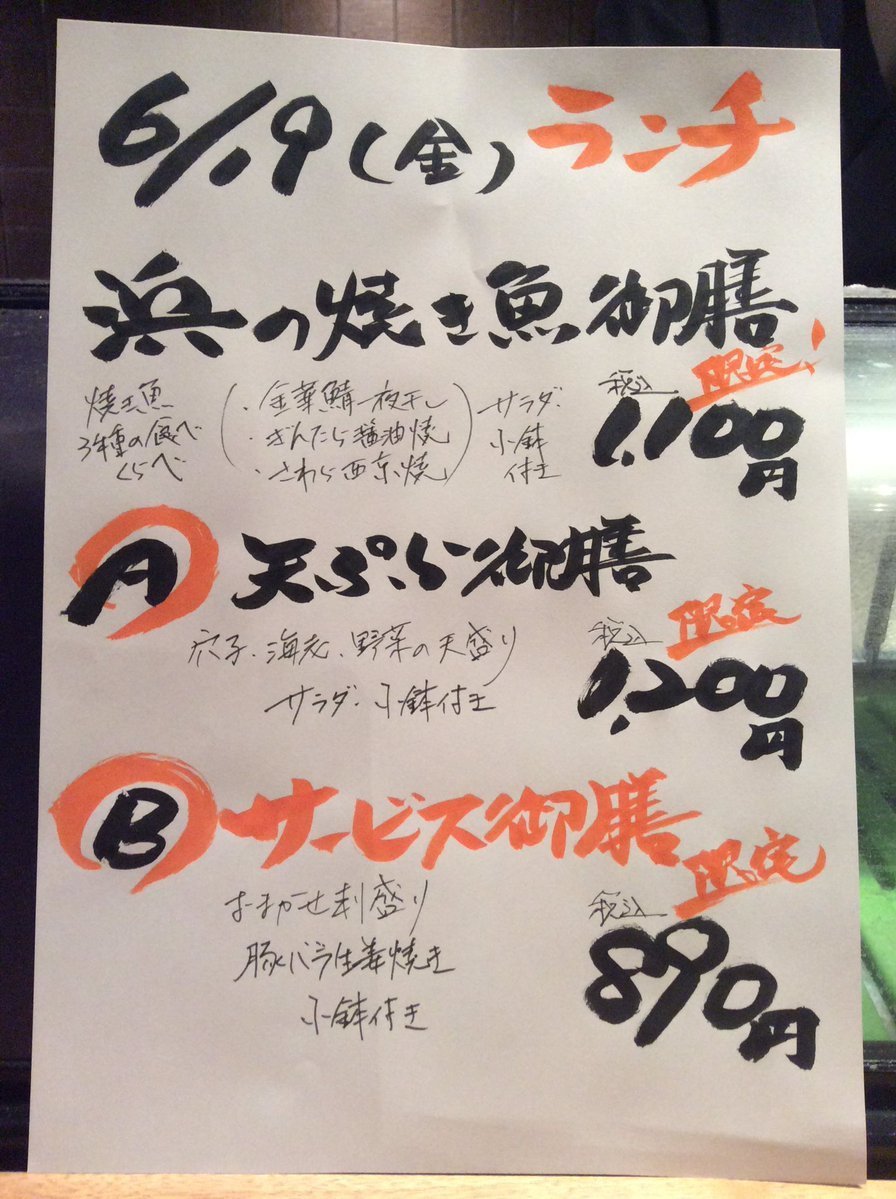 6/19(金)ランチ
浜の焼き魚御膳
限定!
焼き魚
3種の食べ
くらべ
・金華鯖一夜干し
・ぎんだら醤油焼
・さわら西京焼
サラダ・
小鉢
付き
税込
1,100円
A 天ぷら御膳
限定
穴子、海老、野菜の天盛り
サラダ・小鉢付き
税込
1,200円
B サービス御膳
限定
おまかせ刺盛り
豚バラ生姜焼き
小鉢付き
税込
890円